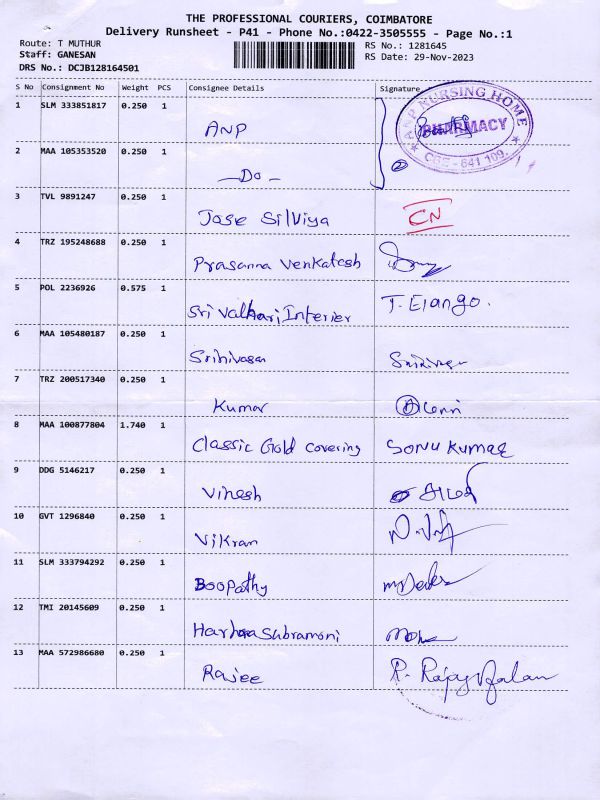 THE PROFESSIONAL COURIERS, COIMBATORE
Delivery Runsheet - P41 - Phone No.:0422-3505555 - Page No.:1
Route: T MUTHUR
RS No.: 1281645
Staff: GANESAN
RS Date: 29-Nov-2023
DRS No.: DCJB128164501
S No Consignment No Weight PCS Consignee Details Signature
1 SLM 333851817 0.250 1
ANP
ANP NURSING HOME
PHARMACY
CBE - 641 109.
2 MAA 105353520 0.250 1
—Do—
3 TVL 9891247 0.250 1
Jose Silviya CN
4 TRZ 195248688 0.250 1
Prasanna Venkatesh
5 POL 2236926 0.575 1
Sri Valhari Interier T. Elango.
6 MAA 105480187 0.250 1
Srinivasan
7 TRZ 200517340 0.250 1
Kumar
8 MAA 100877804 1.740 1
Classic Gold covering SONU KUMAR
9 DDG 5146217 0.250 1
Vinesh
10 GVT 1296840 0.250 1
Vikram
11 SLM 333794292 0.250 1
Boopathy
12 TMI 20145609 0.250 1
Harhara Subramoni
13 MAA 572986680 0.250 1
Rajee R. Rajagopalan